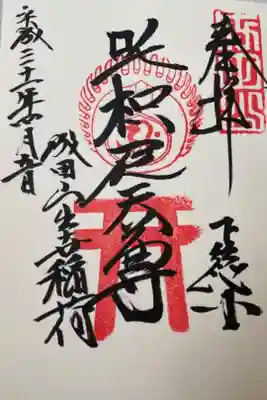 奉拝
下総
吒枳尼天尊
成田山出世稲荷
平成三十一年四月日